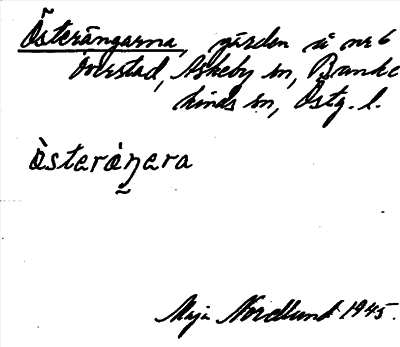 Österängarna, gården å nr 6
Överstad, Askeby sn, Banke
kinds sn, Östg. l.
òsteràŋera
Maja Nordlund 1945.